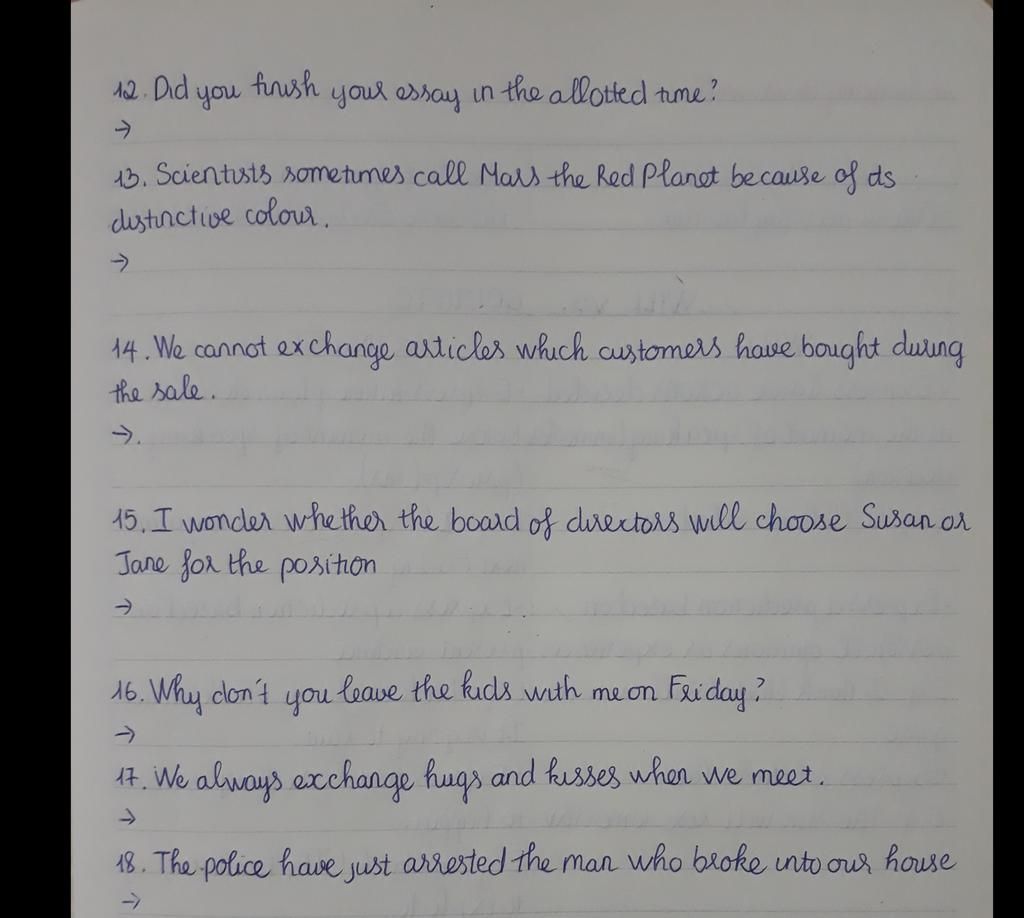 12. Did you finish your essay in the allotted time?
→
13. Scientists sometimes call Mars the Red Planet because of its
distinctive colour.
→
14. We cannot exchange articles which customers have bought during
the sale.
→.
15. I wonder whether the board of directors will choose Susan or
Jane for the position
→
16. Why don't you leave the kids with me on Friday?
→
17. We always exchange hugs and kisses when we meet.
→
18. The police have just arrested the man who broke into our house
→